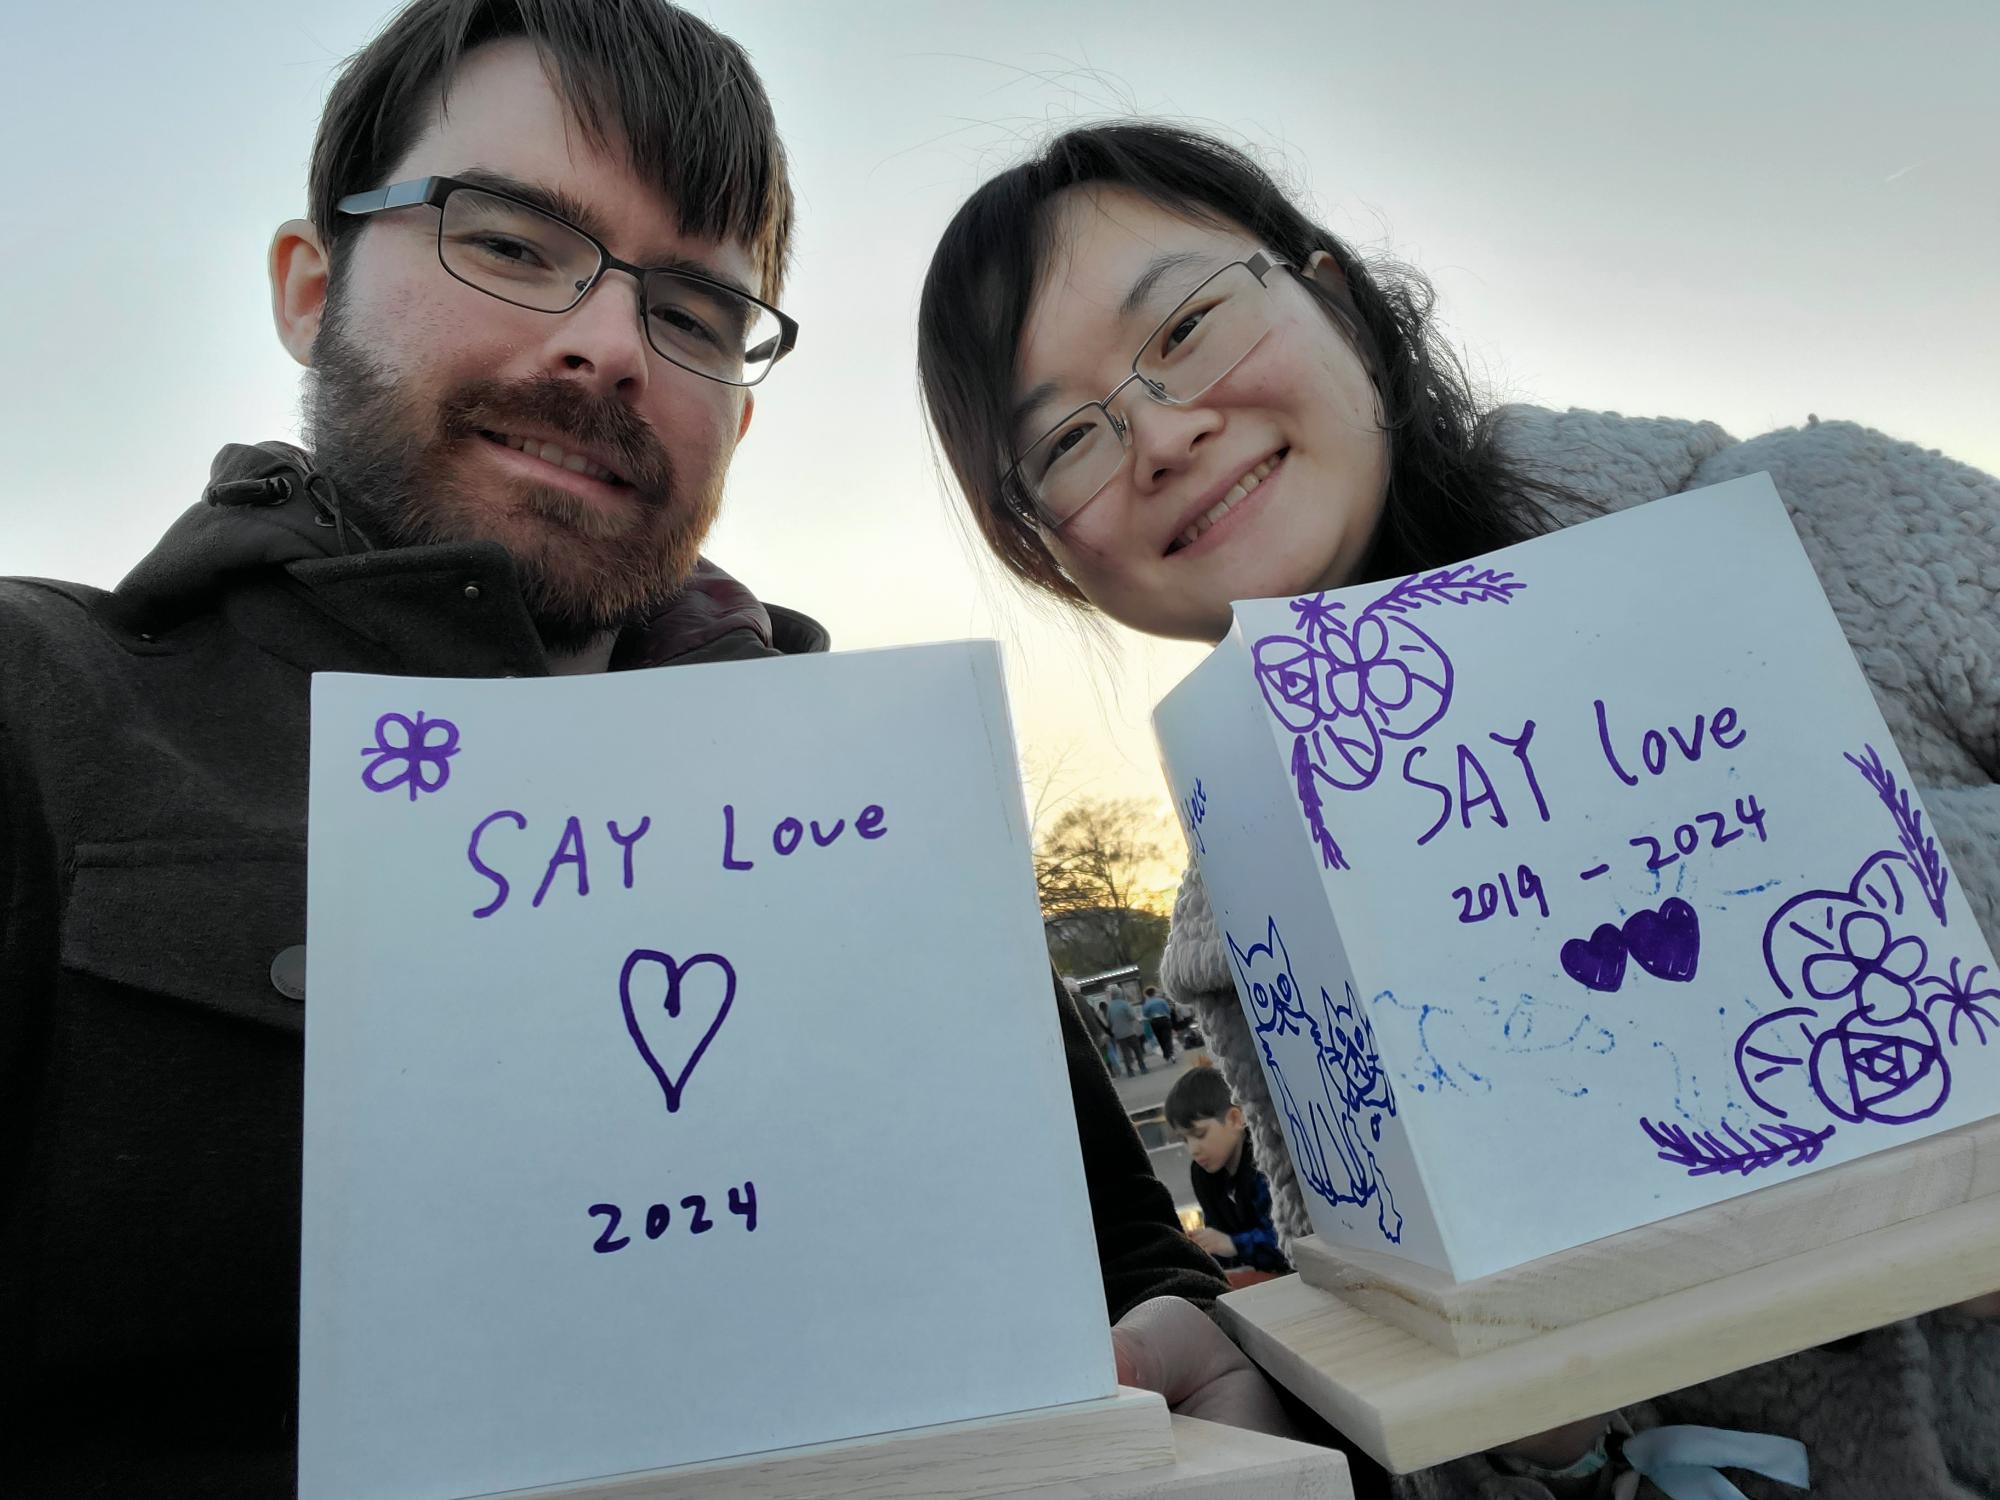 SAY Love
2024
SAY love
2019 - 2024